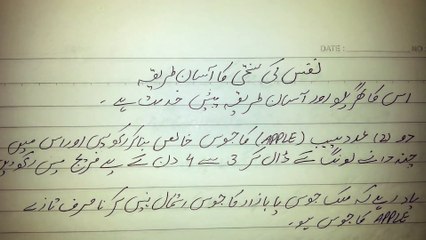 DATE: NO
نفس کی سختی کا آسان طریقہ
اس کا گھریلو اور آسان طریقہ پیش خدمت ہے ۔
دو (2) عدد سیب (APPLE) کا جوس خالص بنا کر رکھ لیں اور اس میں
چند دانے لونگ کے ڈال کر 3 سے 4 دن کے لیے فریج میں رکھ دیں
یاد رہے کہ ملک جوس یا بازار کا جوس استعمال نہیں کرنا صرف تازے
APPLE کا جوس ہو۔